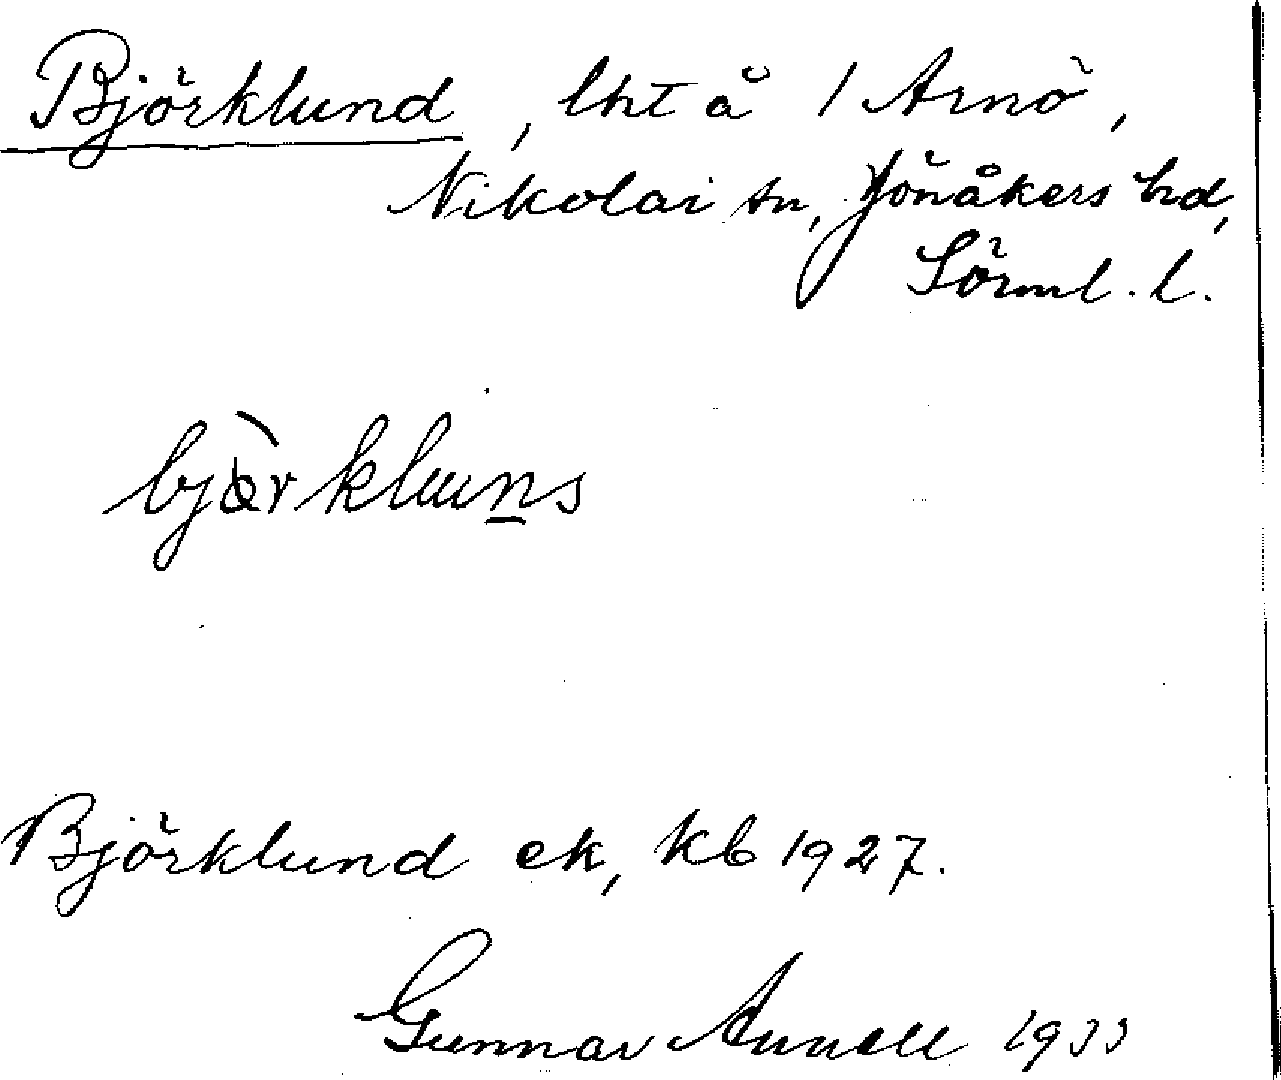 Björklund, lht å 1 Arnö,
Nikolai sn, Jönåkers hd,
Sörml. l.
bjə̀rkluns
Björklund ek, kb 1927.
Gunnar 1933